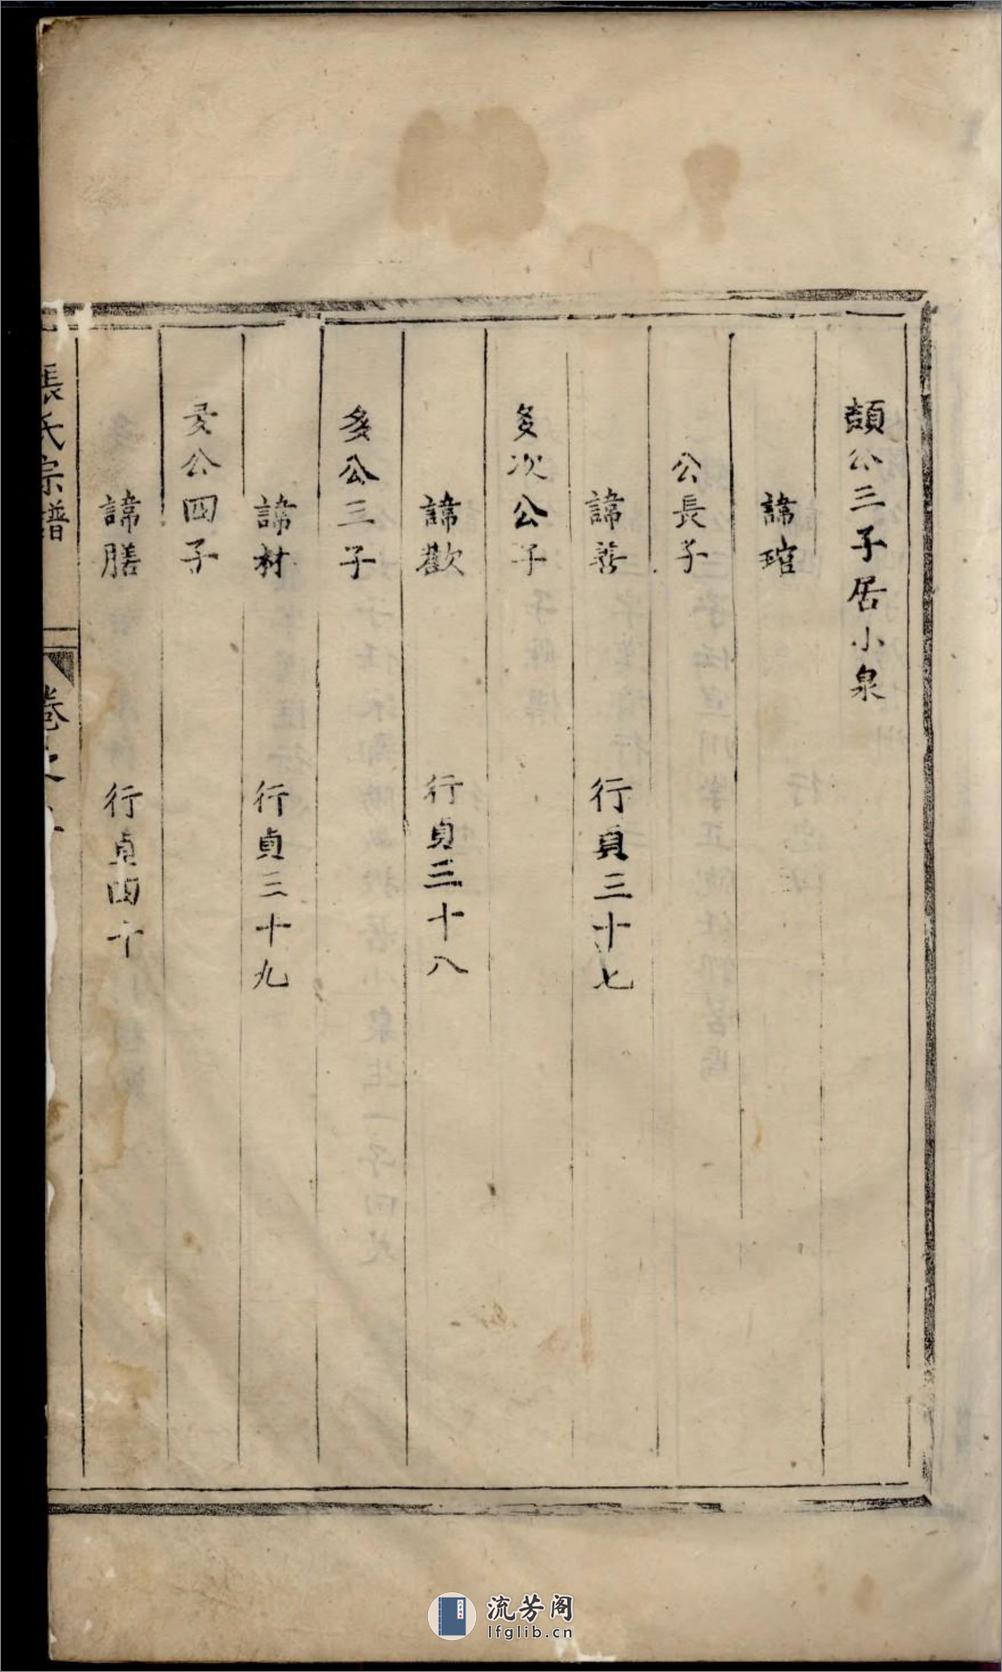 頡公三子居小泉
諱琯
公長子
諱善 行貞三十七
多次公子
諱歡 行貞三十八
多公三子
諱材 行貞三十九
公四子
諱膳 行貞四十
張氏宗譜
卷之
流芳阁
lfglib.cn